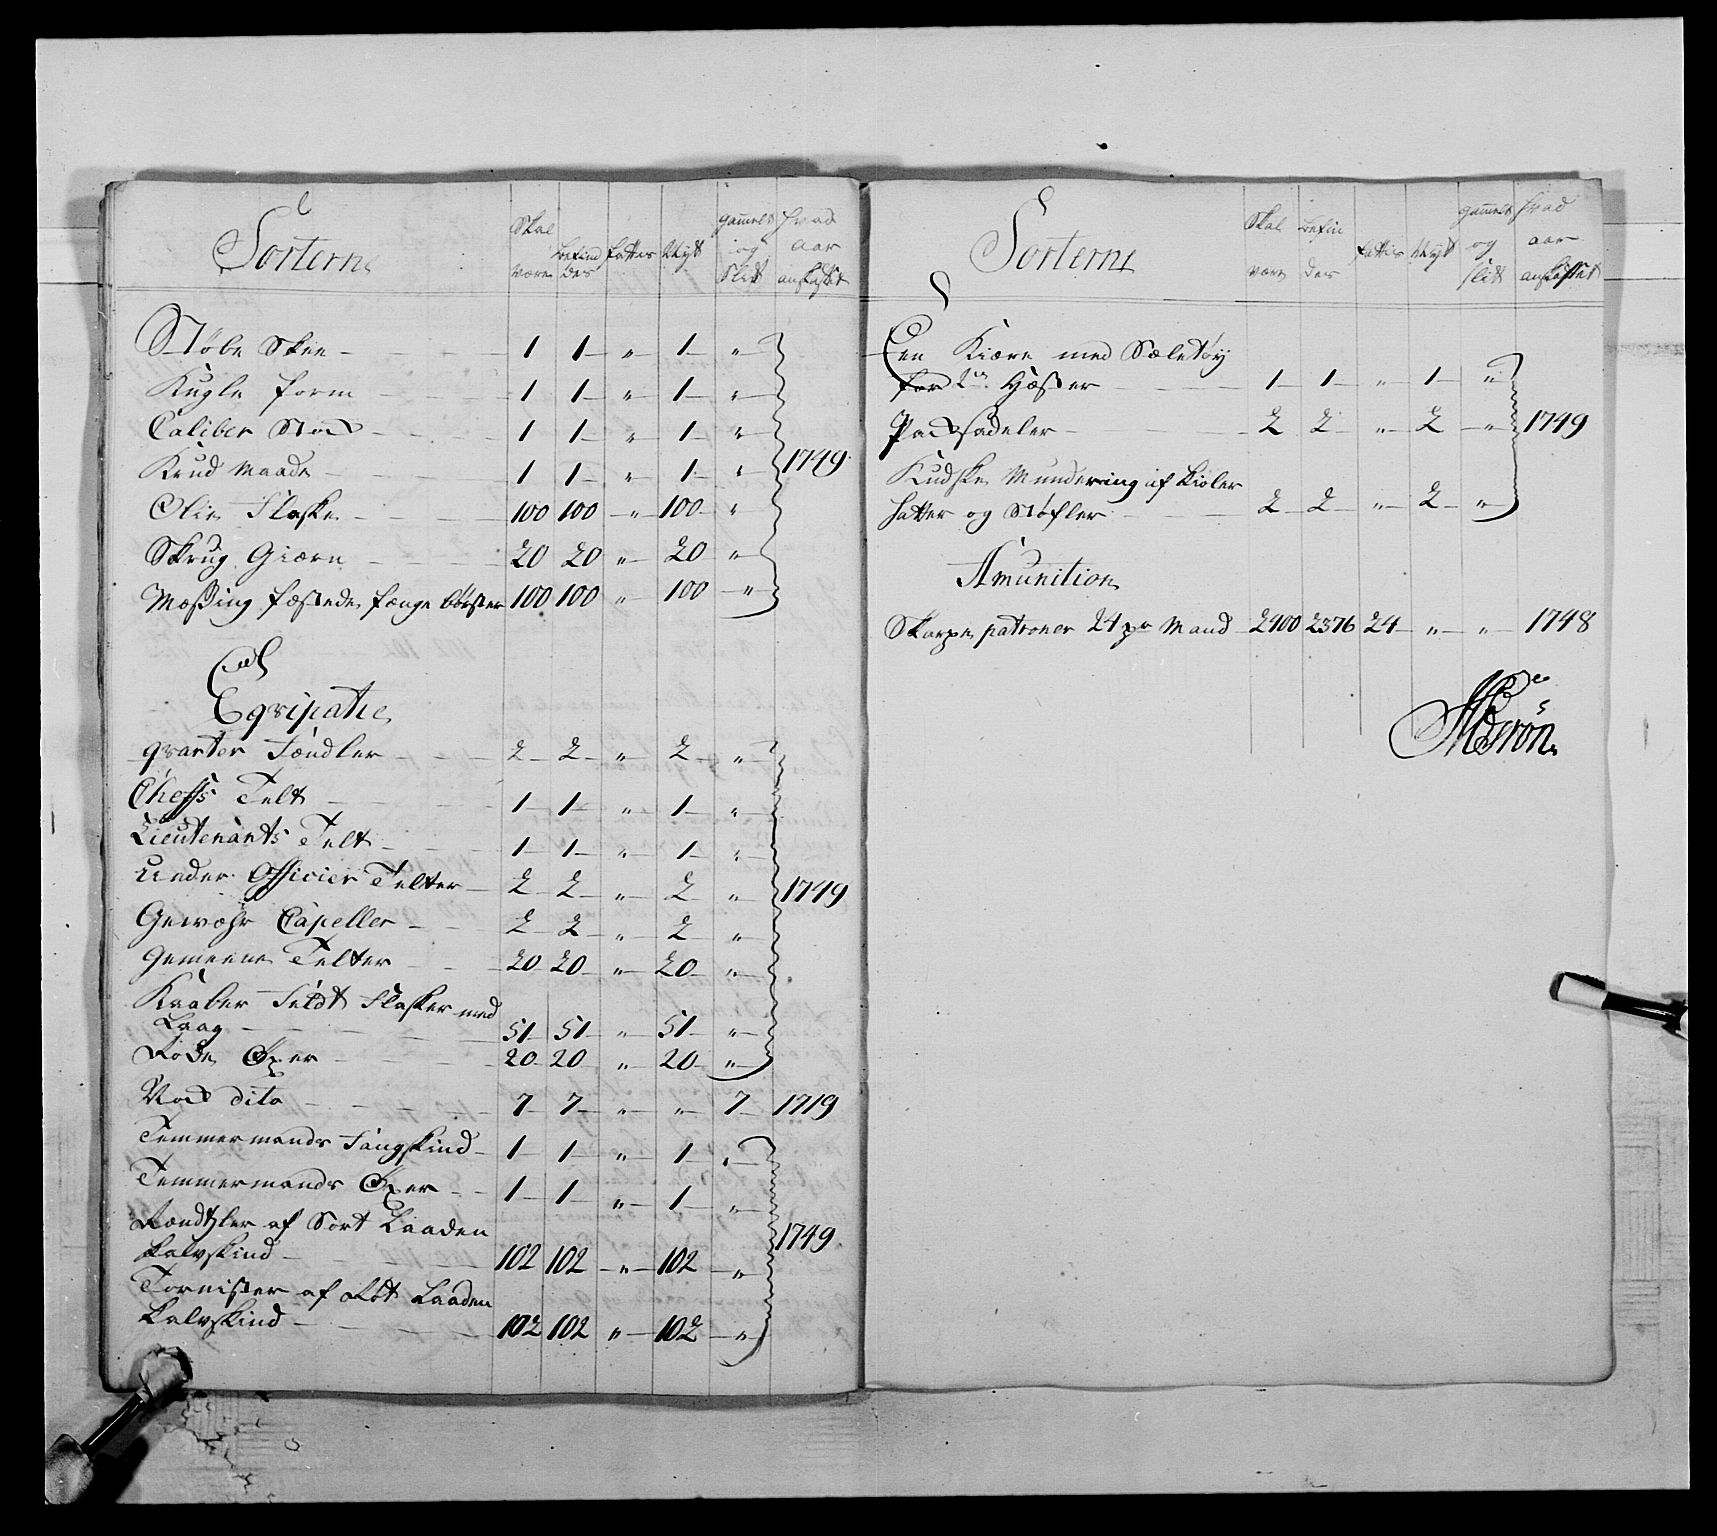 Sorterne | Skal være | befindes | fattes | Nyt | gammelt og Slidt | hvad aar anskaffet
Støbe Skee - 1 1 " 1 "
Kugle form - 1 1 " 1 "
Caliber Stok - 1 1 " 1 "
Krud Maade - 1 1 " 1 " 1749
Olie Flaske - 100 100 " 100 "
Skrug Giærn - 20 20 " 20 "
Messing fæstede fænge børster 100 100 " 100 "
Equipatie
qvarter Fændler - 2 2 " 2 "
Cheffs Telt - 1 1 " 1 "
Lieutenants Telt - 1 1 " 1 "
Under Officier Telter - 2 2 " 2 " 1749
Gewæhr Capeller - 2 2 " 2 "
Gemeene Telter - 20 20 " 20 "
Kaaber Feldt Flasker med
Laag - 51 51 " 51 "
Røde Øxer - 20 20 " 20 "
Nok dito - 7 7 " " 7 1719
Temmermands Fangskind - 1 1 " 1 "
Temmermands Øxer - 1 1 " 1 "
Rændtzler af Sort Laaden
kalvskind - 102 102 " 102 " 1749
Tornister af Røt Laaden
kalvskind - 102 102 " 102 "
Sorterne | Skal være | befindes | fattes | Nyt | gammelt og slidt | hvad aar anskaffet
Een Kiære med Sæletøy
for 2de Hæster - 1 1 " 1 "
Paksadeler - 2 2 " 2 " 1749
Kudske Mundering af kioler
hatter og Støfler - 2 2 " 2 "
Amunition
Skarpe patroner 24 pr Mand 2400 2376 24 " " 1748